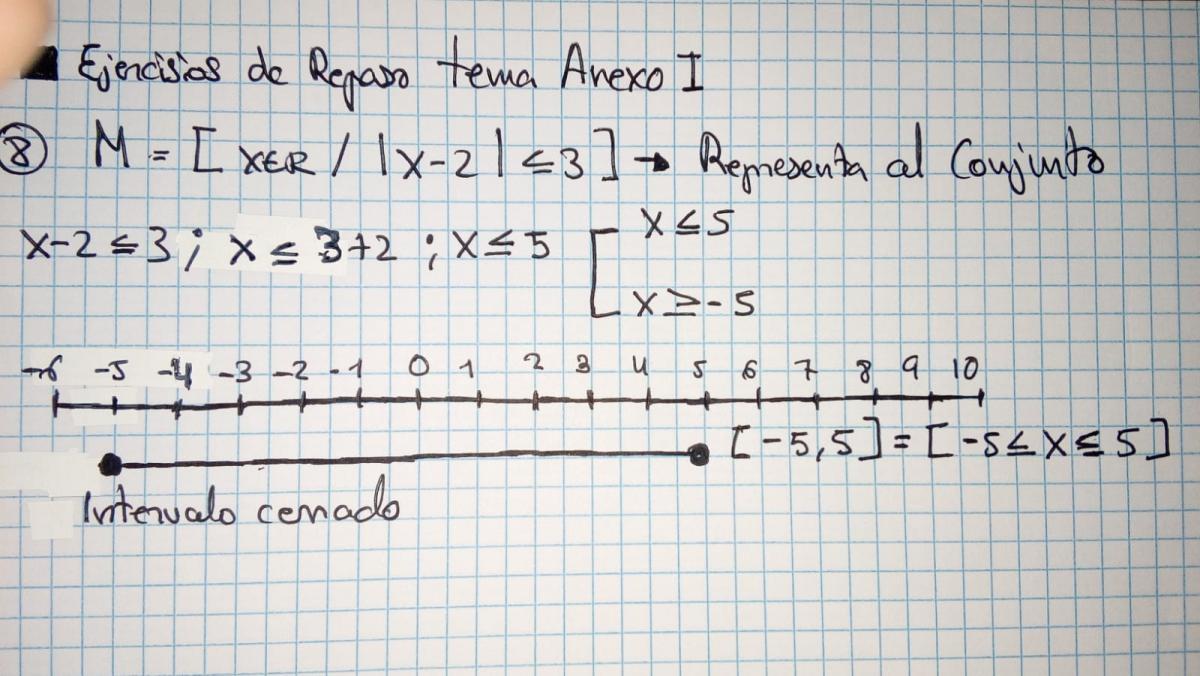 Ejercisios de Repaso tema Anexo I
8 M = [ x∈R / |x-2| ≤ 3 ] → Representa al Conjunto
x-2 ≤ 3 ; x ≤ 3+2 ; x ≤ 5 [ x ≤ 5
x ≥ -5
-6 -5 -4 -3 -2 -1 0 1 2 3 4 5 6 7 8 9 10
[-5,5] = [-5 ≤ x ≤ 5]
Intervalo cerrado